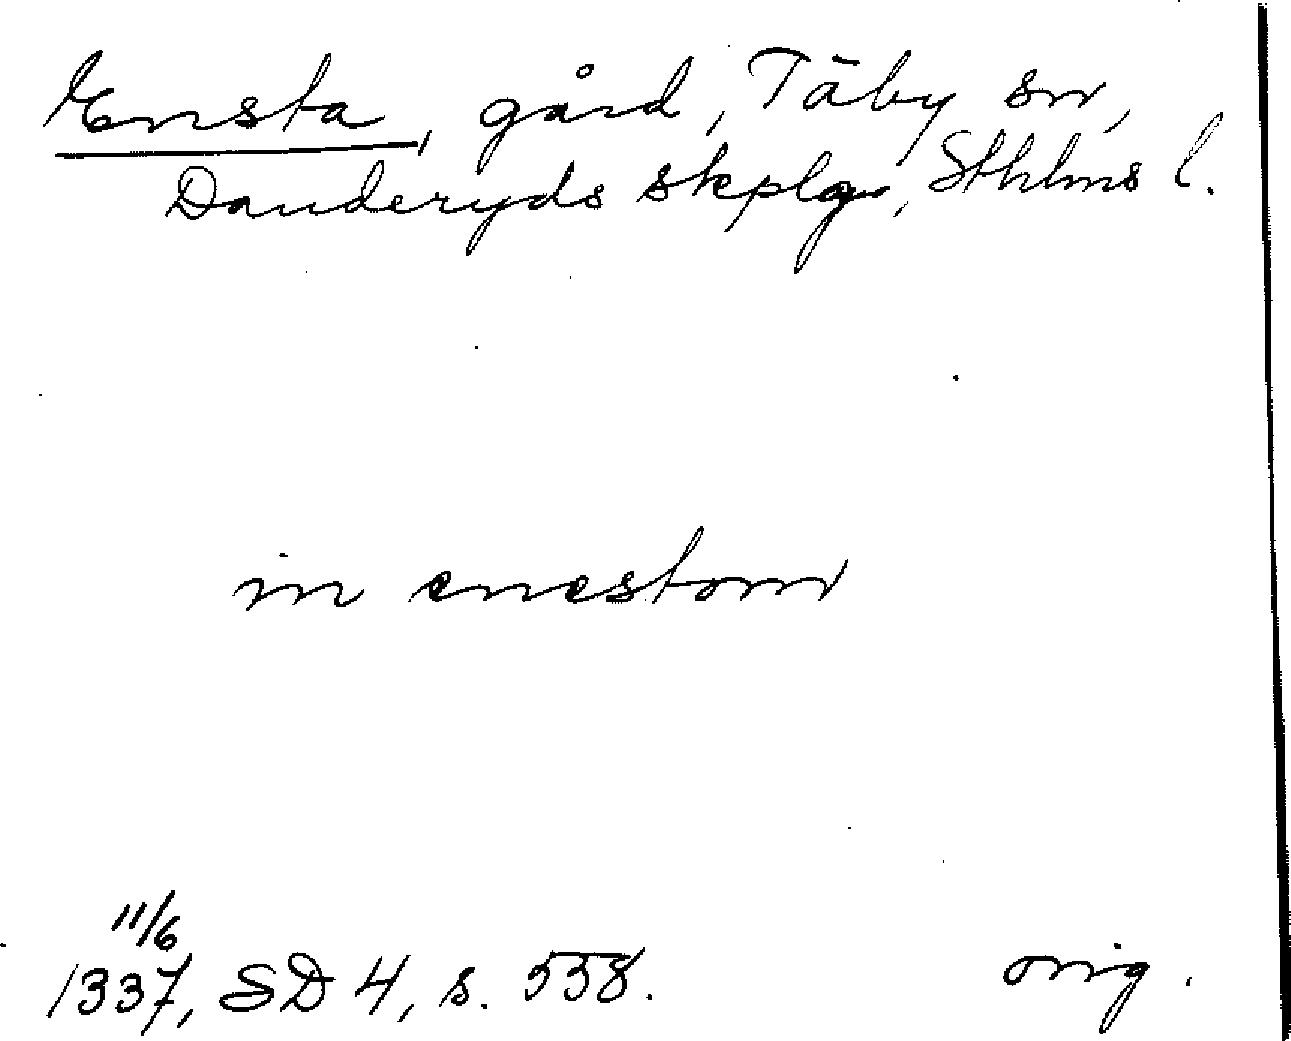 Ensta, gård, Täby sn,
Danderyds skplg, Sthlms l.
in enestom
11/6
1337, SD 4, s. 558.
orig.